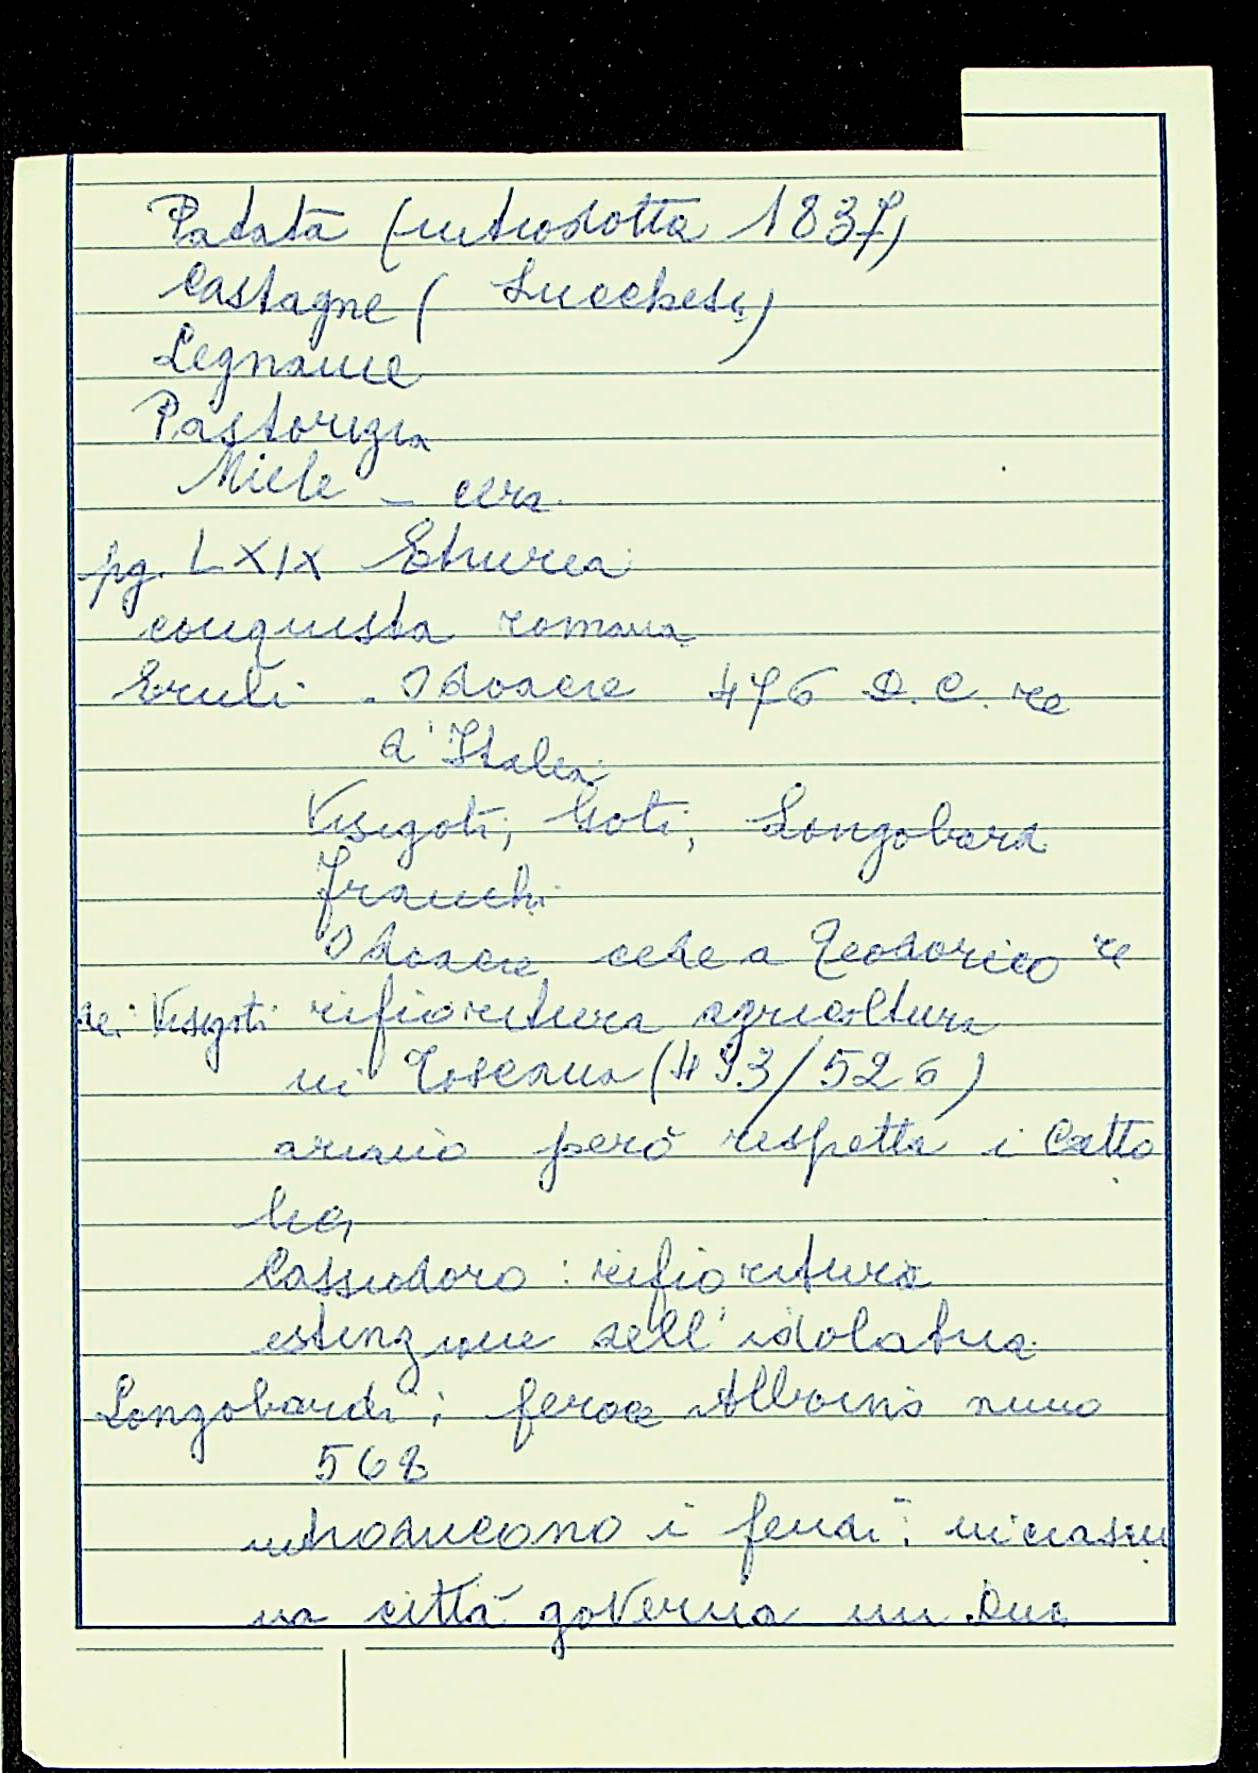 Patata (introdotta 1837)
Castagne ( Lucchesi)
Legname
Pastorizia
Miele - cera
pg. LXIX Etruria
conquista romana
Eruli - Odoacre 476 D.C. re
d'Italia
Visigoti, Goti, Longobard
Franchi
Odoacre cede a Teodorico re
dei Visigoti rifioritura agricoltura
in Toscana (493/526)
ariano però rispetta i Catto
lici
Cassiodoro : rifioritura
estinzione dell'idolatria
Longobardi : feroce Alboino
568
introducono i feudi : in ciascu
na città governa un Duca